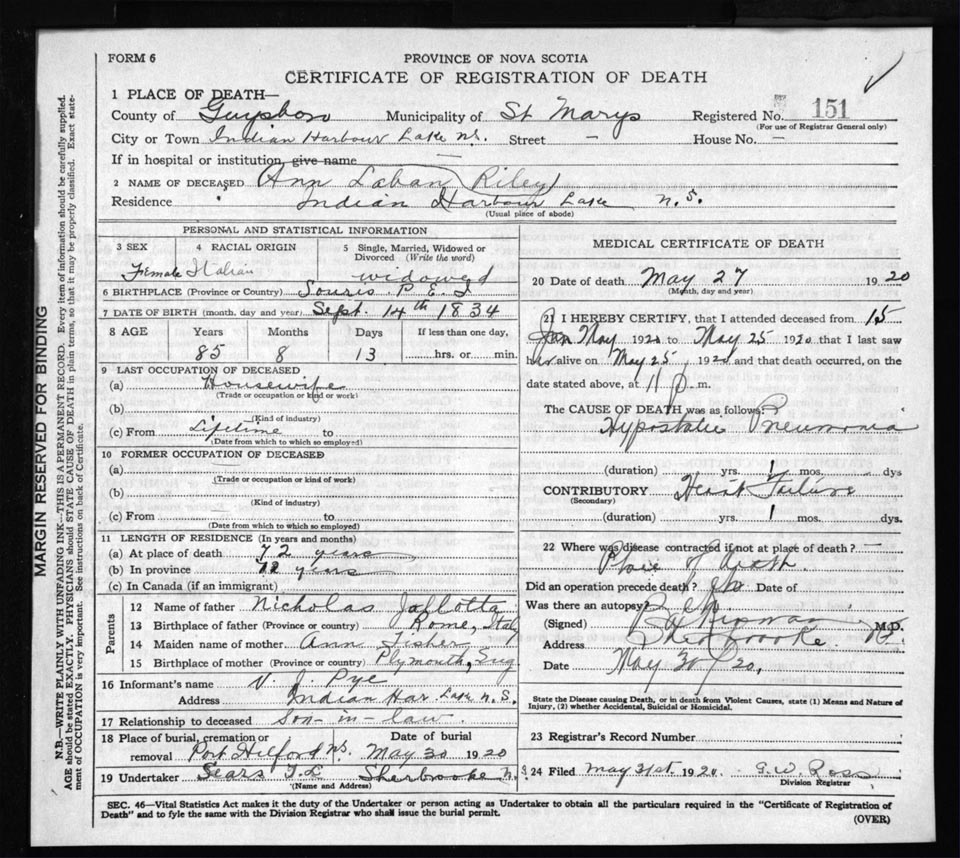 FORM 6
PROVINCE OF NOVA SCOTIA
CERTIFICATE OF REGISTRATION OF DEATH
1 PLACE OF DEATH—
County of Guysboro Municipality of St Marys Registered No. 151
(For use of Registrar General only)
City or Town Indian Harbour Lake N.S. Street — House No. —
If in hospital or institution, give name —
2 NAME OF DECEASED Ann Laban Riley
Residence Indian Harbour Lake N.S.
(Usual place of abode)
PERSONAL AND STATISTICAL INFORMATION
3 SEX 4 RACIAL ORIGIN 5 Single, Married, Widowed or Divorced (Write the word)
Female Italian widowed
6 BIRTHPLACE (Province or Country) Souris P E I
7 DATE OF BIRTH (month, day and year) Sept. 14th 1834
8 AGE Years Months Days If less than one day,
85 8 13 hrs. or min.
9 LAST OCCUPATION OF DECEASED
(a) Housewife
(Trade or occupation or kind or work)
(b)
(Kind of industry)
(c) From Lifetime to
(Date from which to which so employed)
10 FORMER OCCUPATION OF DECEASED
(a)
(Trade or occupation or kind of work)
(b)
(Kind of industry)
(c) From to
(Date from which to which so employed)
11 LENGTH OF RESIDENCE (In years and months)
(a) At place of death 72 years
(b) In province 72 years
(c) In Canada (if an immigrant)
Parents
12 Name of father Nicholas Jallotta
13 Birthplace of father (Province or country) Rome, Italy
14 Maiden name of mother Ann Fisher
15 Birthplace of mother (Province or country) Plymouth, Eng
16 Informant's name V. J. Pye
Address Indian Har. Lake N. S.
17 Relationship to deceased son-in-law.
18 Place of burial, cremation or removal Date of burial
Port Hilford N.S. May 30 1920
19 Undertaker Sears T. L Sherbrooke N. S
(Name and Address)
MEDICAL CERTIFICATE OF DEATH
20 Date of death May 27 1920
(Month, day and year)
21 I HEREBY CERTIFY, that I attended deceased from 15
May 1920 to May 25 1920 that I last saw
her alive on May 25 1920 and that death occurred, on the
date stated above, at 11 p. m.
The CAUSE OF DEATH was as follows:
Hypostatic Pneumonia
(duration) yrs. 1 mos. dys
CONTRIBUTORY Heart Failure
(Secondary)
(duration) yrs. 1 mos. dys.
22 Where was disease contracted if not at place of death? —
Place of death.
Did an operation precede death? No Date of
Was there an autopsy? No
(Signed) M.D.
Address Sherbrooke
Date May 30 / 20.
State the Disease causing Death, or in death from Violent Causes, state (1) Means and Nature of
Injury, (2) whether Accidental, Suicidal or Homicidal.
23 Registrar's Record Number
24 Filed May 31st. 1920. G. W. Ross
Division Registrar
SEC. 46—Vital Statistics Act makes it the duty of the Undertaker or person acting as Undertaker to obtain all the particulars required in the "Certificate of Registration of
Death" and to fyle the same with the Division Registrar who shall issue the burial permit.
(OVER)
MARGIN RESERVED FOR BINDING
N.B.—WRITE PLAINLY WITH UNFADING INK—THIS IS A PERMANENT RECORD. Every item of information should be carefully supplied.
AGE should be stated EXACTLY. PHYSICIANS should STATE CAUSE OF DEATH in plain terms, so that it may be properly classified. Exact state-
ment of OCCUPATION is very important. See instructions on back of Certificate.